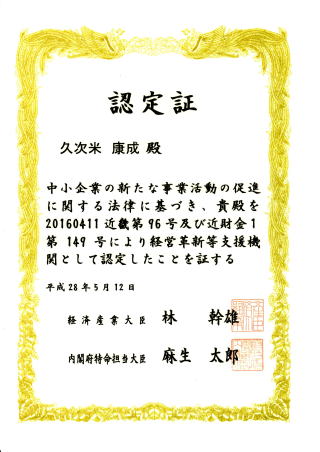 認定証
久次米 康成 殿
中小企業の新たな事業活動の促進
に関する法律に基づき、貴殿を
20160411近畿第96号及び近財金1
第 149 号により経営革新等支援機
関として認定したことを証する
平成28年5月12日
経済産業大臣 林 幹雄
内閣府特命担当大臣 麻生 太郎